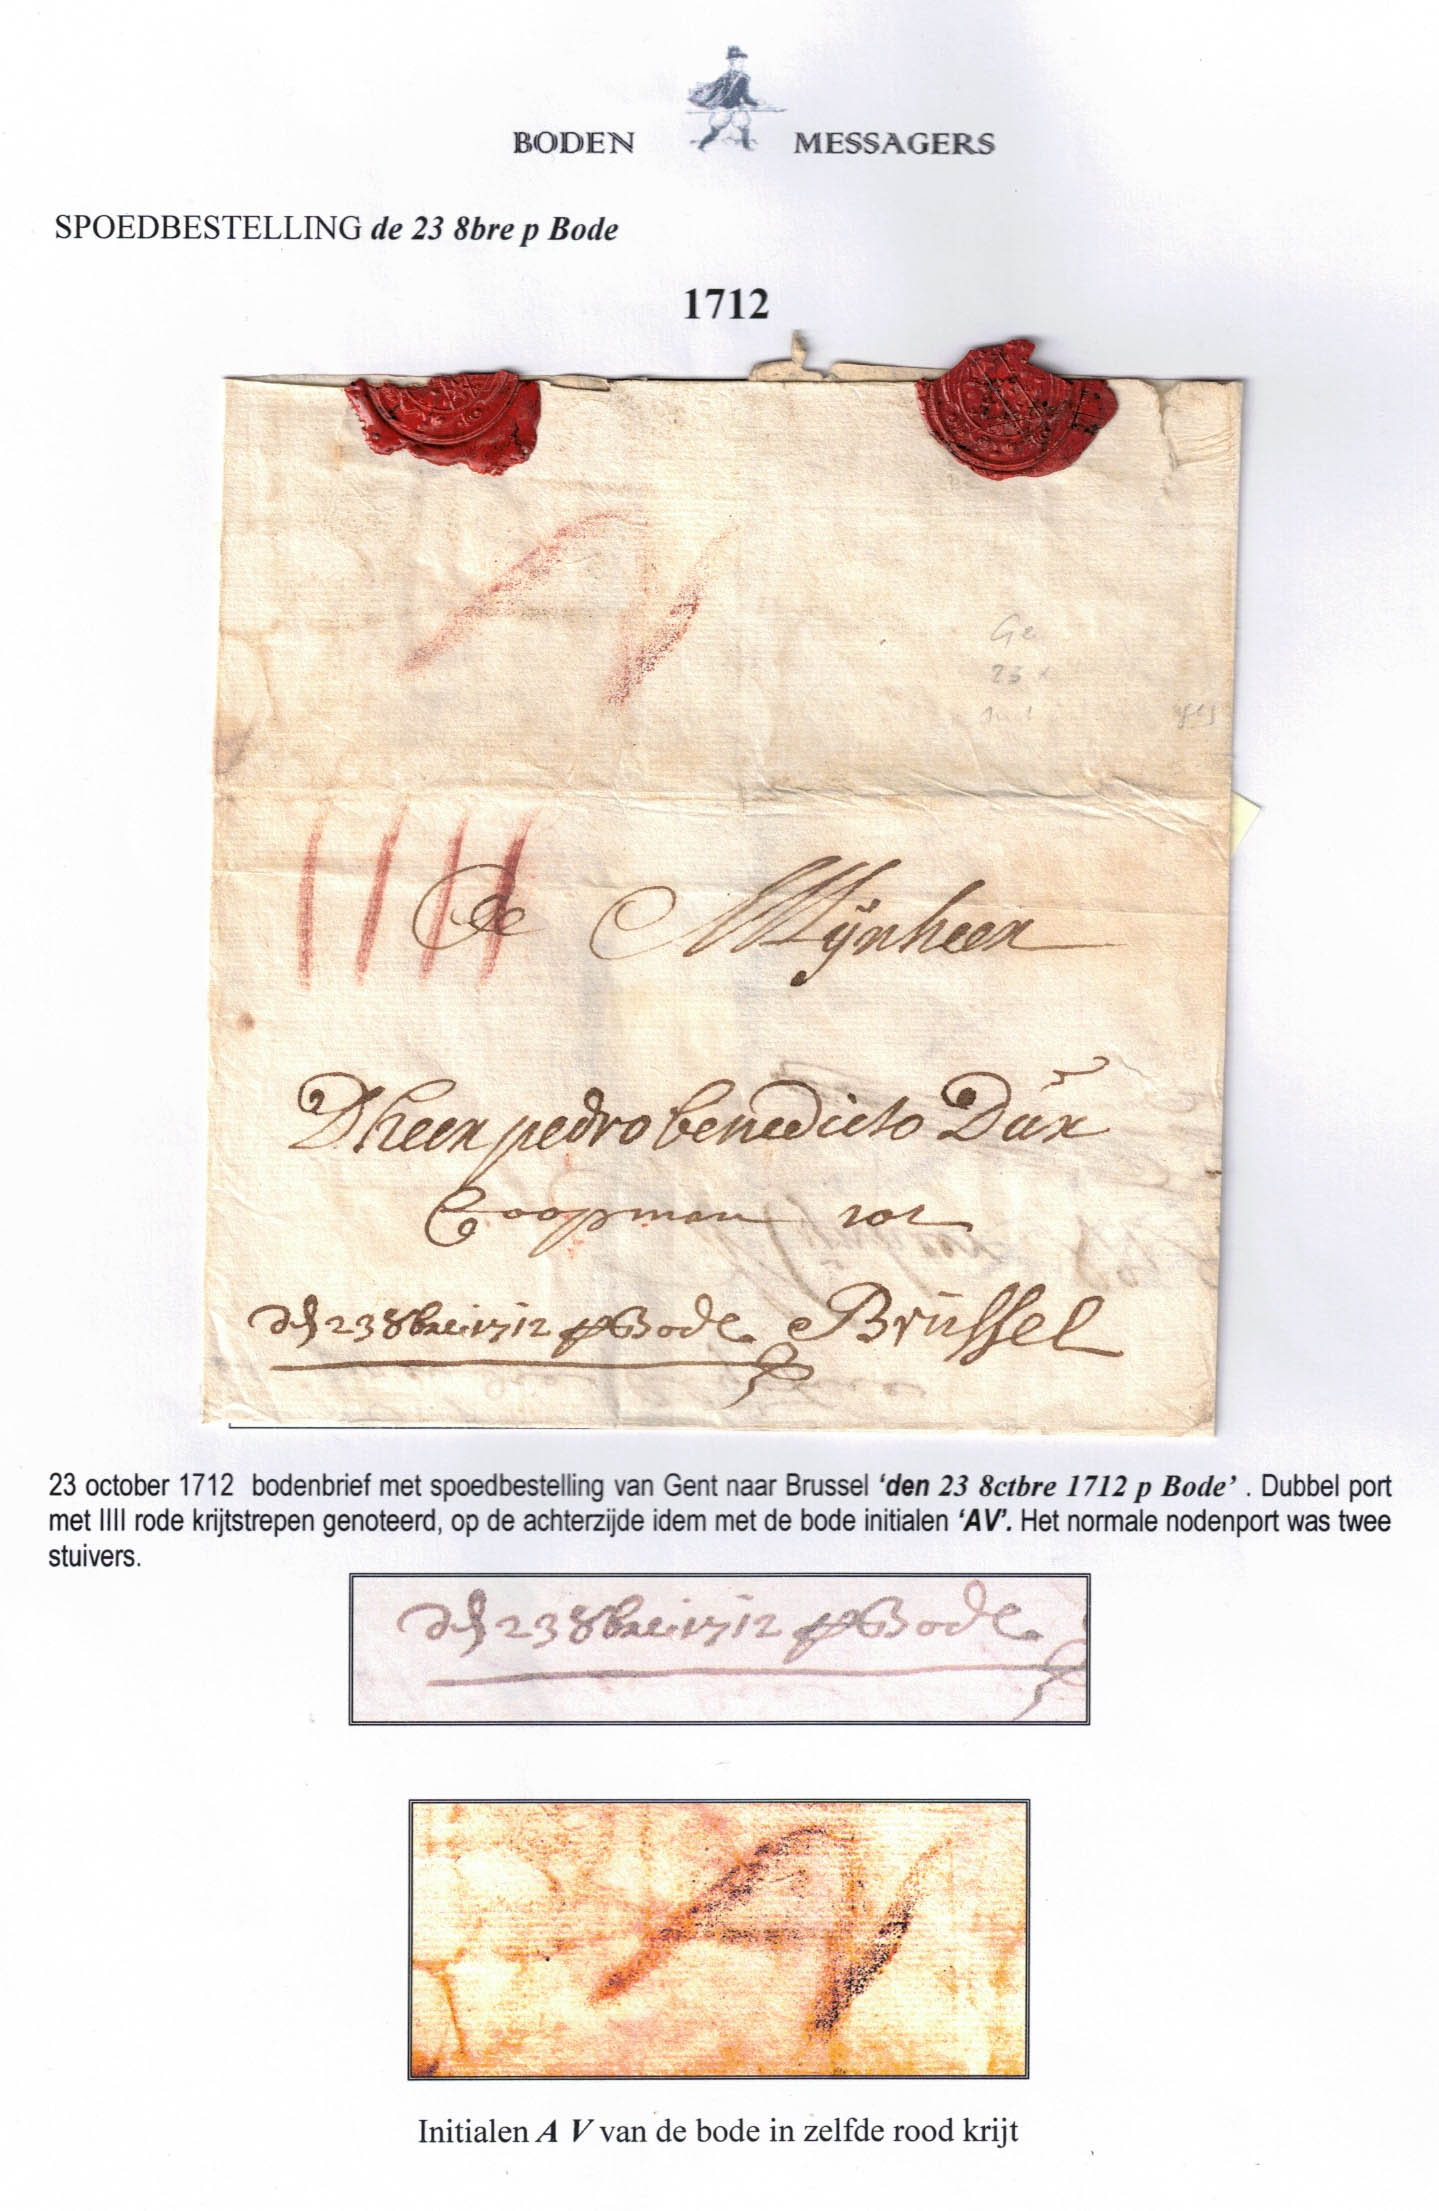 BODEN MESSAGERS
SPOEDBESTELLING de 23 8bre p Bode
1712
AV
Ge
23
IIII
De Mÿnheer
Dheer pedro benedicto Düx
Coopman tot
den 23 8bre 1712 p Bode Brüssel
23 october 1712 bodenbrief met spoedbestelling van Gent naar Brussel ‘den 23 8ctbre 1712 p Bode’ . Dubbel port
met IIII rode krijtstrepen genoteerd, op de achterzijde idem met de bode initialen ‘AV’. Het normale nodenport was twee
stuivers.
den 23 8bre 1712 p Bode
AV
Initialen A V van de bode in zelfde rood krijt